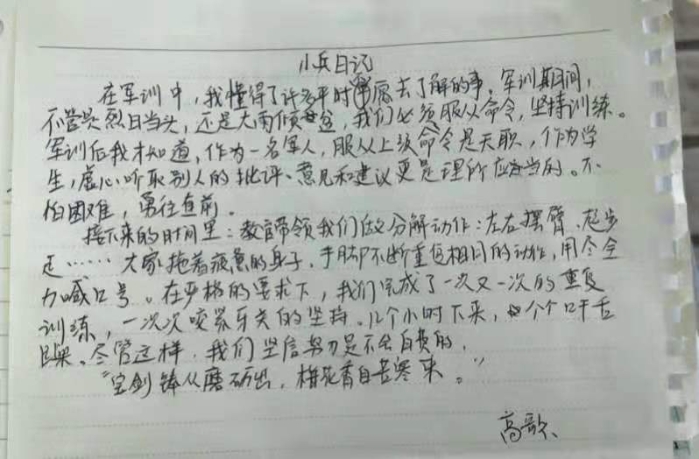 小兵日记
在军训中，我懂得了许多平时没去了解的事。军训期间，
不管是烈日当头，还是大雨倾盆，我们必须服从命令，坚持训练。
军训后我才知道，作为一名军人，服从上级命令是天职，作为学
生，虚心听取别人的批评、意见和建议更是理所应当的。不
怕困难，勇往直前。
接下来的时间里：教官带领我们做分解动作：左右摆臂、起步
走……大家拖着疲惫的身子，手脚不断重复相同的动作，用尽全
力喊口号。在严格的要求下，我们完成了一次又一次的重复
训练，一次次咬紧牙关的坚持。几个小时下来，个个口干舌
燥。尽管这样，我们坚信努力是不会白费的，
“宝剑锋从磨砺出，梅花香自苦寒来。”
高歌、